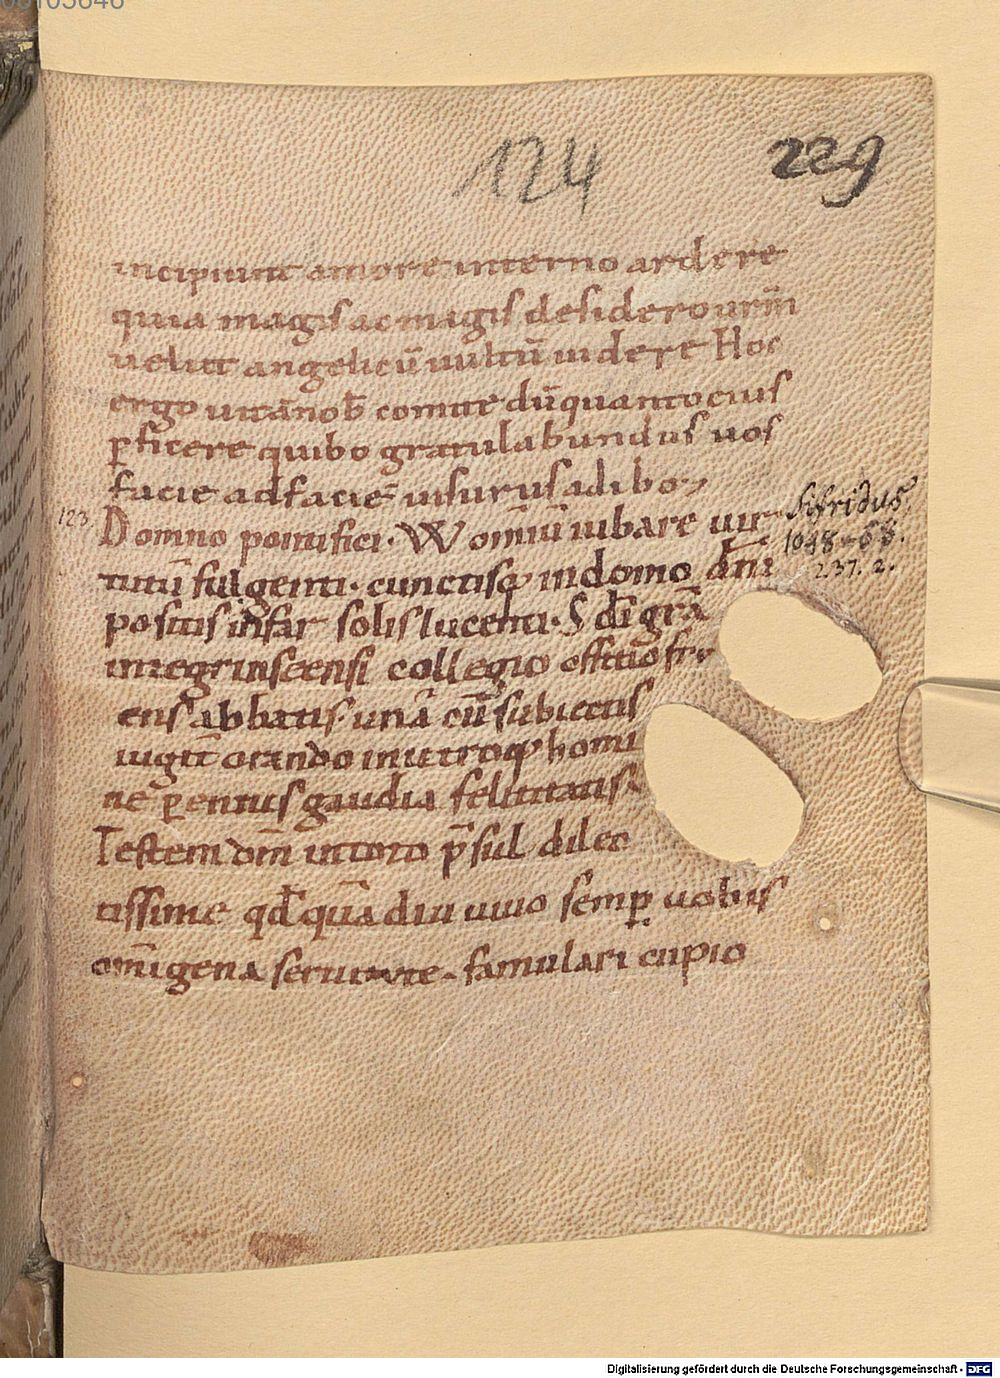 124
229
incipiunt amore interno ardere
quia magis ac magis desidero urm̄
uelut angelicū uultū uidere Hoc
ergo uitā nob̄ comite dn̄ quantocius
p̄ficere quibo gratulabundus uos
facie ad faciē uisurus adibo
123. Domno pontifici · W omniū iubare uir
Sifridus.
1048-68.
237. 2.
tutū fulgenti · cunctisq; in domo dn̄i
positis instar solis lucenti · S dī grā
integrinseensi collegio officio fr
ens abbatis · unā cū subiectis
iugit̄ orando in utroq; homi
ne p̄ennis gaudia felicitatis
Testem dm̄ inuoco p̄sul dilec
tissime qd̄ quādiu uiuo semp̱ uobis
om̄igena seruitute famulari cupio
Digitalisierung gefördert durch die Deutsche Forschungsgemeinschaft - DFG